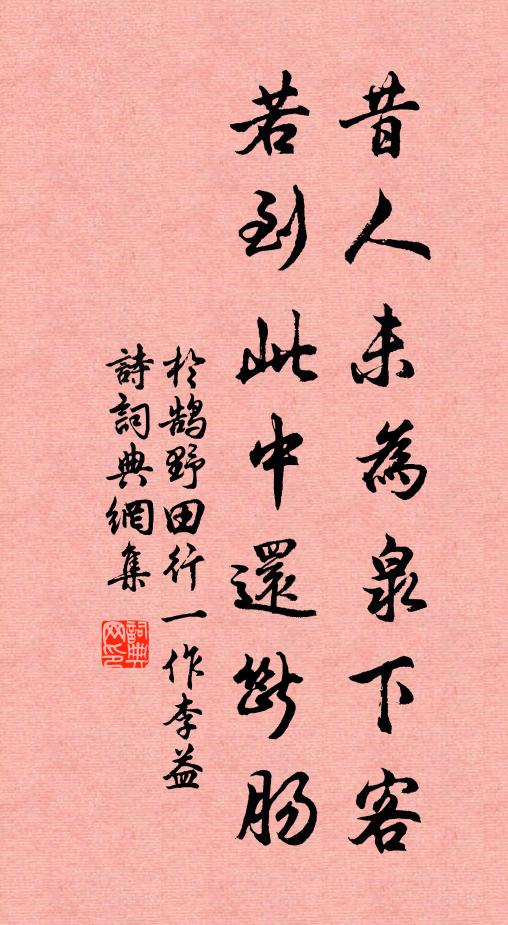 昔人未為泉下客
若到此中還斷腸
於鵠野田行一作李益
詩詞典網集
詞典網印